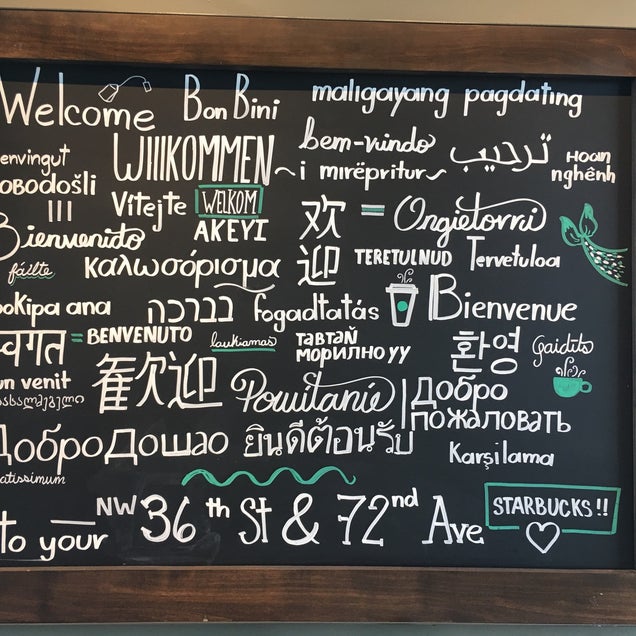 Welcome Bon Bini maligayang pagdating
envingut WIIIKOMMEN bem-vindo ترحيب HOAN nghênh
obodošli ~i mirëpritur~
III Vítejte WELKOM 欢迎 = Ongietorri
Bienvenido AKEYI
fáilte καλωσόρισμα TERETULNUD Tervetuloa
oKipa ana בברכה fogadtatás Bienvenue
वागत = BENVENUTO laukiamas ТАВТАЙ МОРИЛНО УУ 환영 Gaidīts
un venit 歡迎 Powitanie Добро пожаловать
ДоброДошао ยินดีต้อนรับ Karşilama
atissimum
to your NW 36th St & 72nd Ave STARBUCKS!!